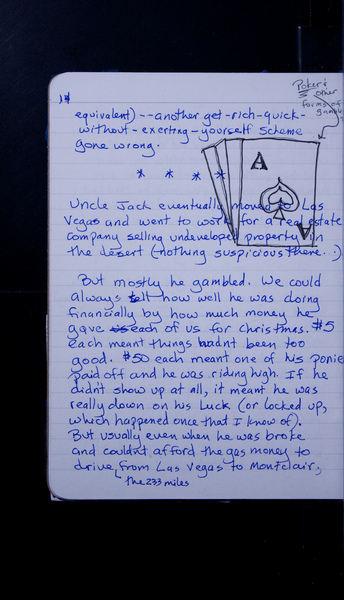 14
Poker &
other
forms of
gambling
equivalent) -- another get-rich-quick-
without-exerting-yourself scheme
gone wrong.
* * * *
A
A
Uncle Jack eventually moved to Las
Vegas and went to work for a real estate
company selling undeveloped property in
the desert (nothing suspicious there..)
But mostly he gambled. We could
always tell how well he was doing
financially by how much money he
gave each of us for Christmas. $5
each meant things hadn't been too
good. $50 each meant one of his ponies
paid off and he was riding high. If he
didn't show up at all, it meant he was
really down on his luck (or locked up,
which happened once that I know of).
But usually even when he was broke
and couldn't afford the gas money to
drive from Las Vegas to Montclair,
the 233 miles